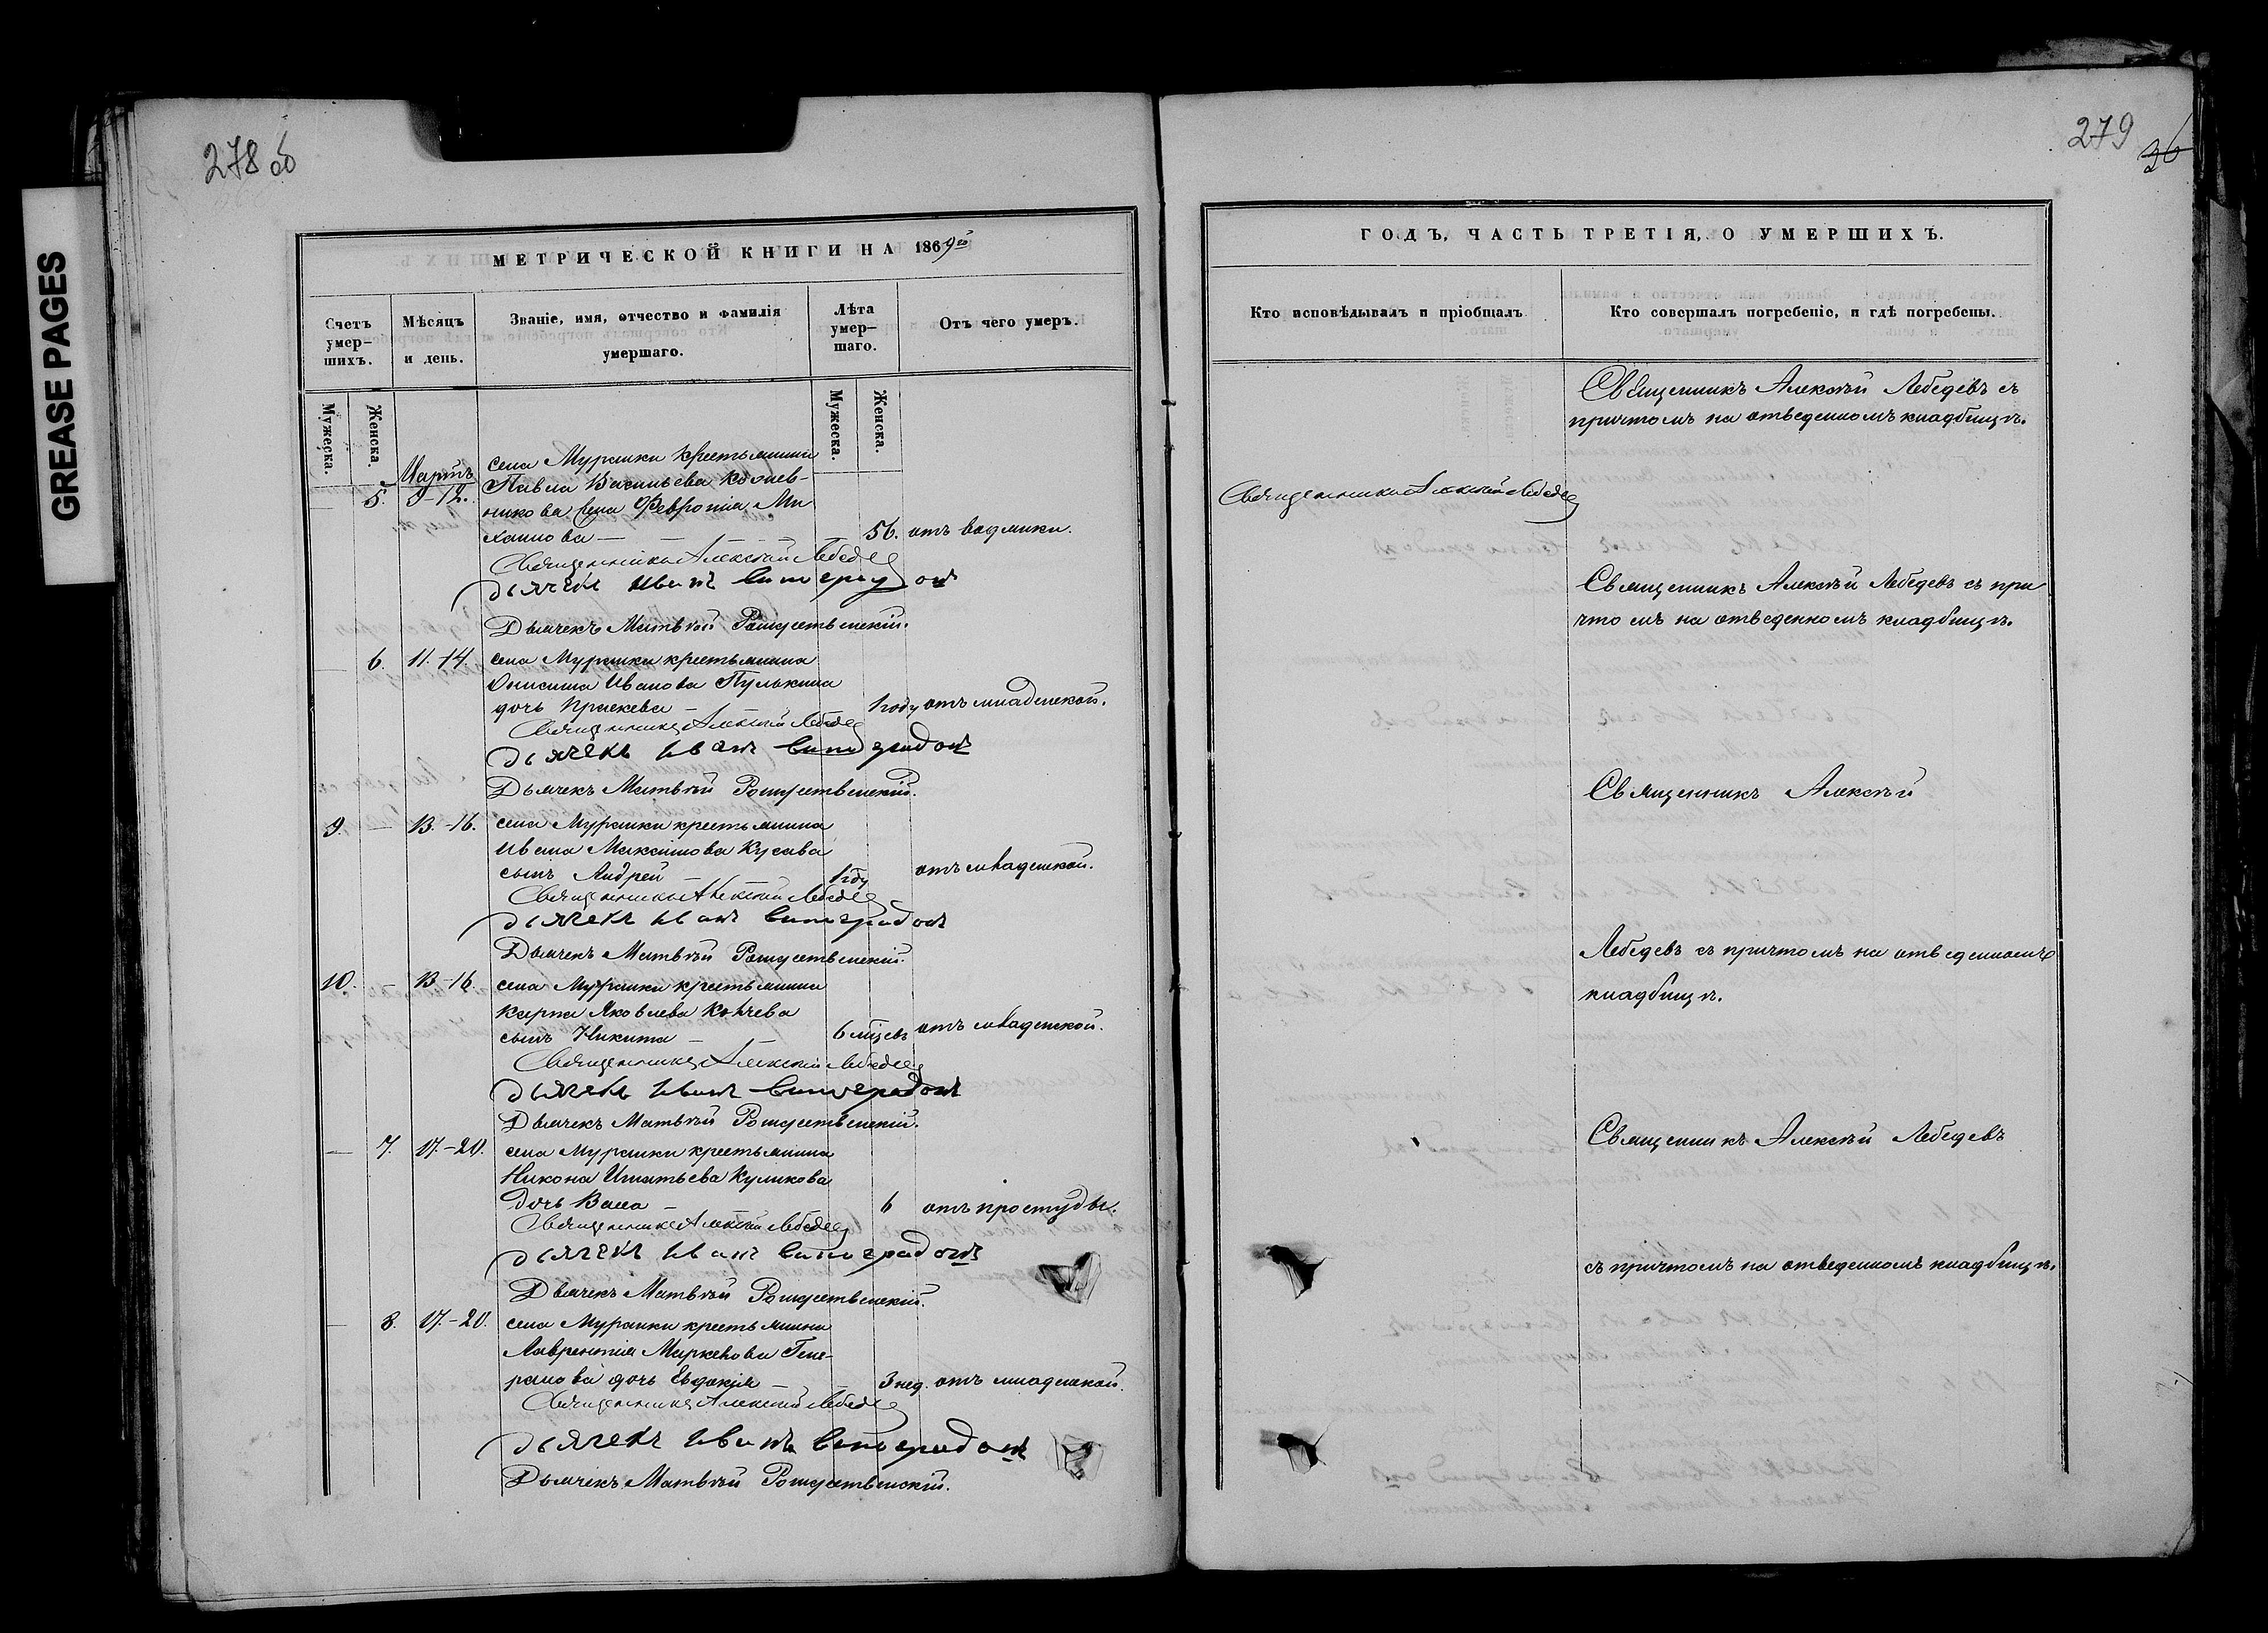 GREASE PAGES
278 об
МЕТРИЧЕСКОЙ КНИГИ НА 1869й
Счетъ умер-шихъ.
Мѣсяцъ и день.
Званіе, имя, отчество и фамилія умершаго.
Лѣта умер-шаго.
Отъ чего умеръ.
Мужеска.
Женска.
Мужеска.
Женска.
Мартъ
села Мурашки крестьянина
5. 9-12. Павла Васильева
жена Февронія Ми
хайлова — 56. отъ водянки.
Священникъ Алексѣй Лебедев
дьячекъ Иванъ Виноградовъ
Дьячекъ Матвѣй Рождественскій.
— 6. 11.-14. села Мурашки крестьянина
Онисима Иванова Пулькина
дочь Праскева — 1 году отъ младенской.
Священникъ Алексѣй Лебедев
дьячекъ Иванъ Виноградовъ
Дьячекъ Матвѣй Рождественскій.
9. — 13.-16. села Мурашки крестьянина
Ивана Максимова Кусава
сынъ Андрей — 1 году отъ младенской.
Священникъ Алексѣй Лебедев
дьячекъ Иванъ Виноградовъ
Дьячекъ Матвѣй Рождественскій.
10. — 13-16. села Мурашки крестьянина
Карпа Яковлева
сынъ Никита — 6 мѣсцевъ отъ младенской.
Священникъ Алексѣй Лебедев
дьячекъ Иванъ Виноградовъ
Дьячекъ Матвѣй Рождественскій.
— 7. 17.-20. села Мурашки крестьянина
Никона Игнатьева Куликова
дочь Васса — 6 отъ простуды.
Священникъ Алексѣй Лебедев
дьячекъ Иванъ Виноградовъ
Дьячекъ Матвѣй Рождественскій.
— 8. 17.-20. села Мурашки крестьянина
Лаврентія Маркелова Гене-
ралова дочь Евдокія — 3 нед. отъ младенской.
Священникъ Алексѣй Лебедев
дьячекъ Иванъ Виноградовъ
Дьячекъ Матвѣй Рождественскій.
279
36
ГОДЪ, ЧАСТЬ ТРЕТІЯ, О УМЕРШИХЪ.
Кто исповѣдывалъ и пріобщалъ
Кто совершалъ погребеніе, и гдѣ погребены.
Священникъ Алексѣй Лебедевъ съ
причтомъ на отведенномъ кладбищѣ.
Священникъ Алексѣй Лебедев
Священникъ Алексѣй Лебедевъ съ при
чтомъ на отведенномъ кладбищѣ.
Священникъ Алексѣй
Лебедевъ съ причтомъ на отведенномъ
кладбищѣ.
Священникъ Алексѣй Лебедевъ
съ причтомъ на отведенномъ кладбищѣ.